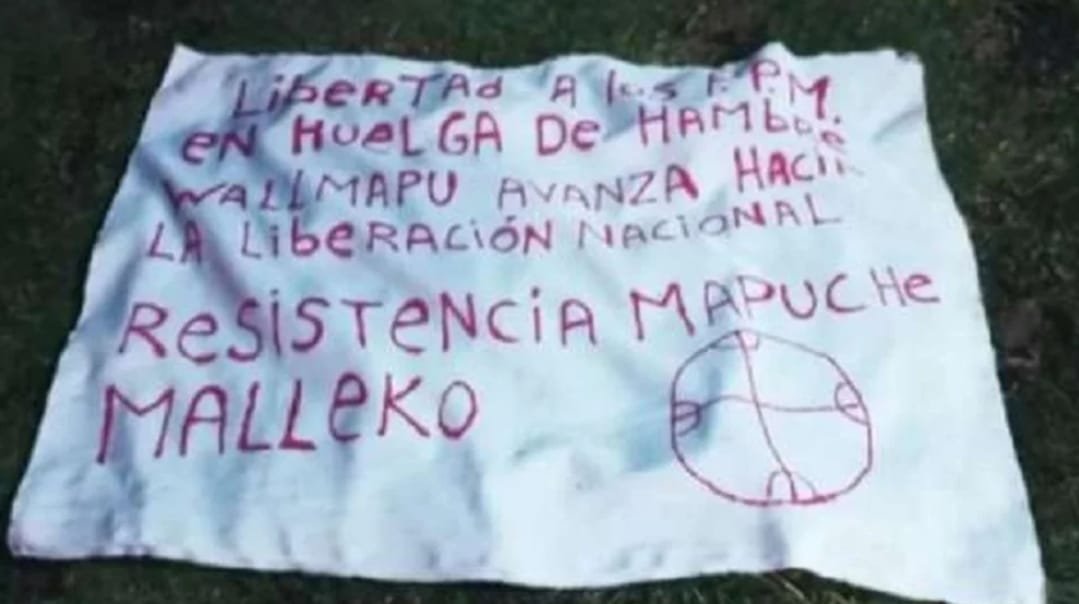 LiberTAd A los P.P.M.
eN HUelGA De HAMbre
WALLMAPU AVANZA HACiA
LA LibeRACiÓN NACioNAL
ReSiSTeNCiA MAPUCHe
MALLeKO